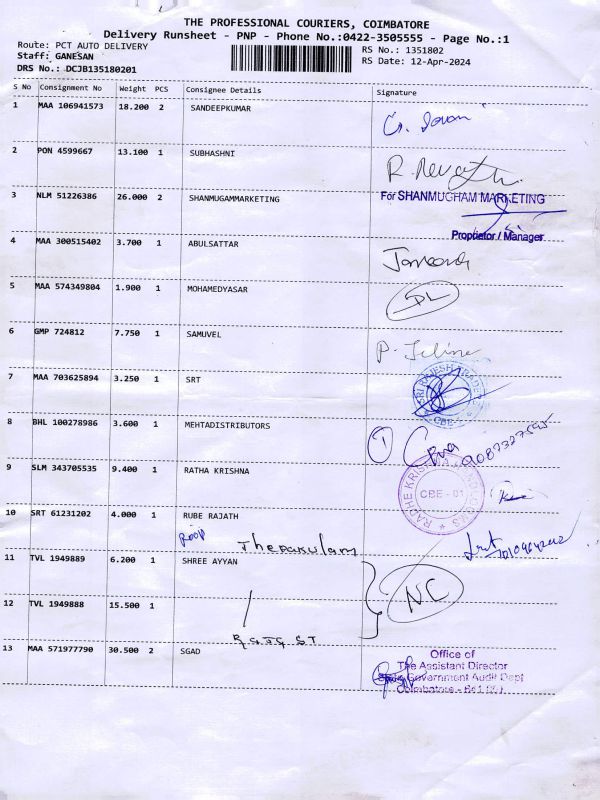 THE PROFESSIONAL COURIERS, COIMBATORE
Delivery Runsheet - PNP - Phone No.:0422-3505555 - Page No.:1
Route: PCT AUTO DELIVERY
RS No.: 1351802
Staff: GANESAN
RS Date: 12-Apr-2024
DRS No.: DCJB135180201
S No Consignment No Weight PCS Consignee Details Signature
1 MAA 106941573 18.200 2 SANDEEPKUMAR
2 PON 4599667 13.100 1 SUBHASHNI
R. Revathi
3 NLM 51226386 26.000 2 SHANMUGAMMARKETING
For SHANMUGHAM MARKETING
Proprietor / Manager
4 MAA 300515402 3.700 1 ABULSATTAR
5 MAA 574349804 1.900 1 MOHAMEDYASAR
DL
6 GMP 724812 7.750 1 SAMUVEL
7 MAA 703625894 3.250 1 SRT
SRI RAJESH TRADERS
CBE-
8 BHL 100278986 3.600 1 MEHTADISTRIBUTORS
9 SLM 343705535 9.400 1 RATHA KRISHNA
CBE - 01
10 SRT 61231202 4.000 1 RUBE RAJATH
Roop
Theppakulam
11 TVL 1949889 6.200 1 SHREE AYYAN
NC
12 TVL 1949888 15.500 1
13 MAA 571977790 30.500 2 SGAD
Office of
The Assistant Director
Government Audit Dept
Coimbatore -